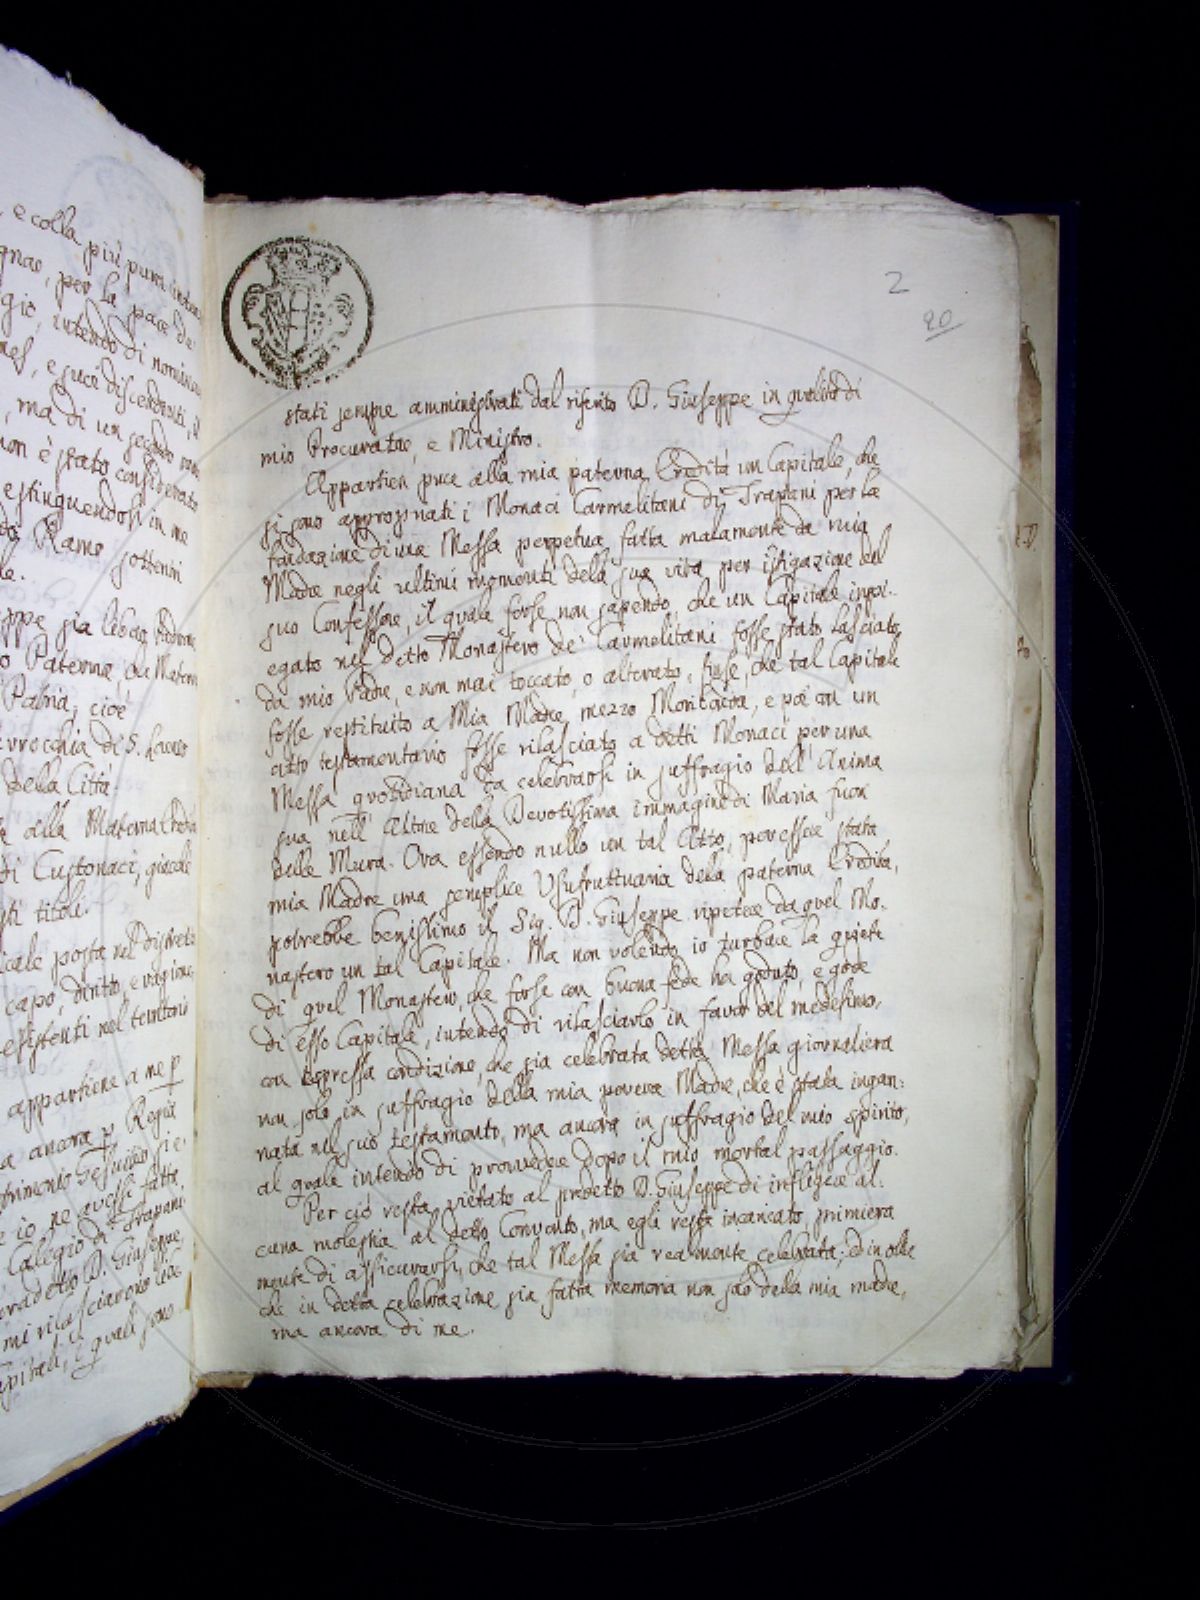 e colla più pura
per la pace de
gio, intendo di nominare
e suoi discendenti, il
ma di un secondo
non è stato considerato
estinguendosi in me
Ramo sottentri
sia libero Padrone
Paterna, che Materna
Patria, cioè
di S. Lorenzo
della Città.
alla Materna Eredità
di Custonaci, giacché
titoli.
posta nel Distretto
capo, dritto, e ragione,
esistenti nel territorio
appartiene a me p
ancora p Regia
Gesuitico si è
io ne avessi fatta
Collegio di Trapani
D. Giuseppe,
mi rilasciarono
quali sono
2
20
stati sempre amministrati dal riferito D. Giuseppe in qualità di
mio Procuratore, e Ministro.
Appartien pure alla mia paterna Eredità un Capitale, che
si sono appropriati i Monaci Carmelitani di Trapani per la
fondazione di una Messa perpetua fatta malamente da mia
Madre negli ultimi momenti della sua vita per istigazione del
suo Confessore, il quale forse non sapendo, che un Capitale inpi-
egato nel detto Monastero de' Carmelitani fosse stato lasciato
da mio Padre, e non mai toccato, o alterato, fuse, che tal Capitale
fosse restituito a Mia Madre mezzo Moribonda, e poi con un
atto testamentario fosse rilasciato a detti Monaci per una
Messa quotidiana da celebrarsi in suffragio dell'Anima
sua nell'Altare della Devotissima immagine di Maria fuori
delle Mura. Ora essendo nullo un tal Atto, per essere stata
mia Madre una semplice Usufruttuaria della paterna Eredità,
potrebbe benissimo il Sig. D. Giuseppe ripetere da quel Mo-
nastero un tal Capitale. Ma non volendo io turbare la quiete
di quel Monastero, che forse con buona fede ha goduto, e gode
di esso Capitale, intendo di rilasciarlo in favor del medesimo,
con espressa condizione, che sia celebrata detta Messa giornaliera
non solo in suffragio della mia povera Madre, che è stata ingan-
nata nel suo testamento, ma ancora in suffragio del mio spirito,
al quale intendo di provvedere dopo il mio mortal passaggio.
Per ciò resta vietato al predetto D. Giuseppe di infligere al-
cuna molestia al detto Convento, ma egli resta incaricato primiera
mente di assicurarsi, che tal Messa sia realmente celebrata; ed in oltre
che in detta celebrazione sia fatta memoria non solo della mia madre,
ma ancora di me.